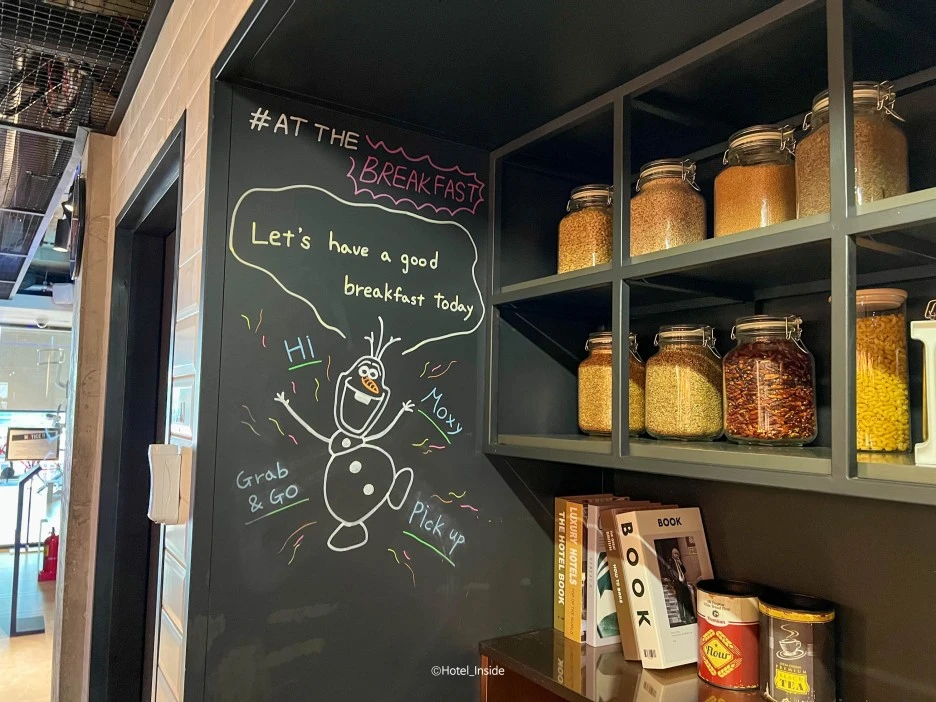 #AT THE
BREAKFAST
Let's have a good
breakfast today
Hi
Moxy
Grab
& GO
Pick up
THE HOTEL BOOK
LUXURY HOTELS
BOOK
BOOK
Flour
PREMIUM
TEA
©Hotel_Inside